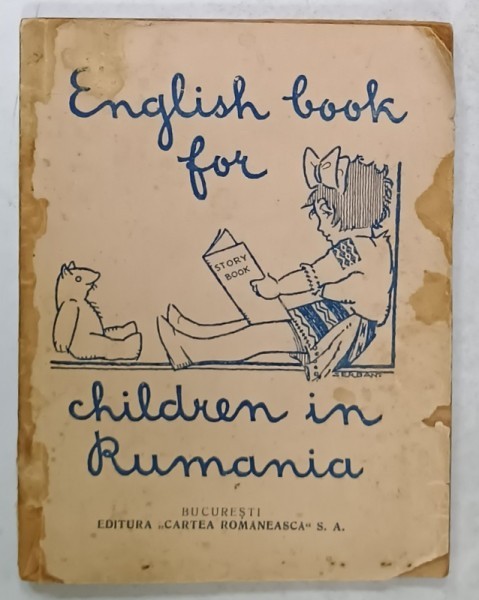 English book
for
STORY
BOOK
children in
Rumania
BUCUREȘTI
EDITURA „CARTEA ROMÂNEASCĂ" S. A.